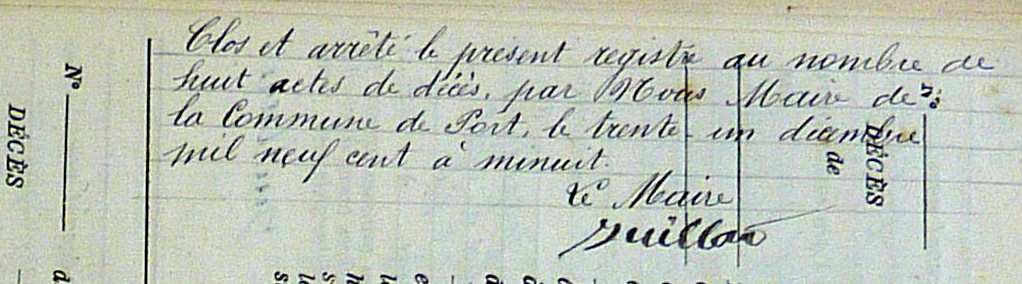 Clos et arrêté le présent registre au nombre de
huit actes de décès, par Nous Maire de
la Commune de Port, le trente-un décembre
mil neuf cent à minuit.
Le Maire
N°
DÉCÈS
N°
DÉCÈS
de